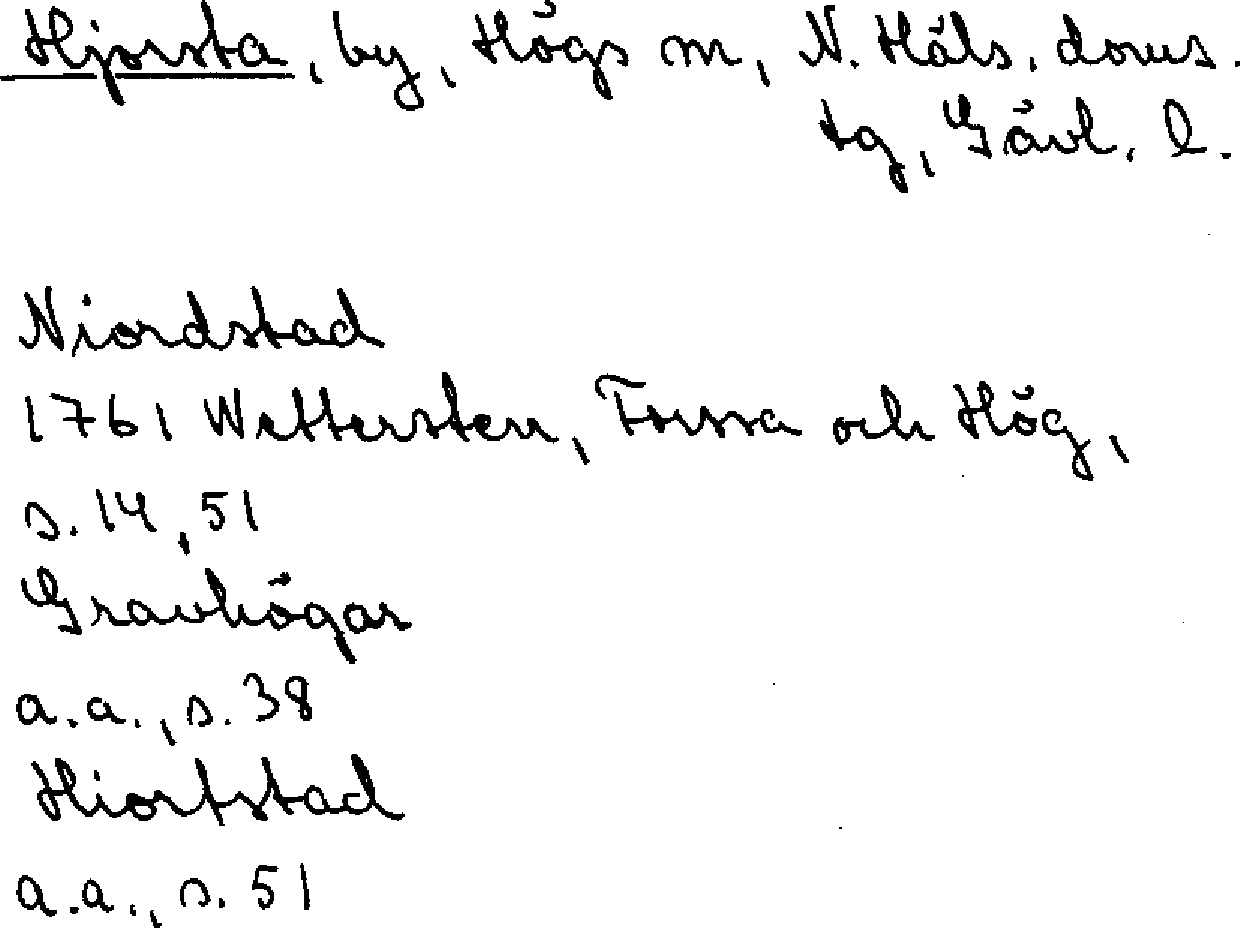 Hjorsta, by, Högs sn, N. Häls. doms.
tg, Gävl. l.
Niordstad
1761 Wettersten, Forssa och Hög,
s. 14, 51
Gravhögar
a.a., s. 38
Hiortstad
a.a., s. 51